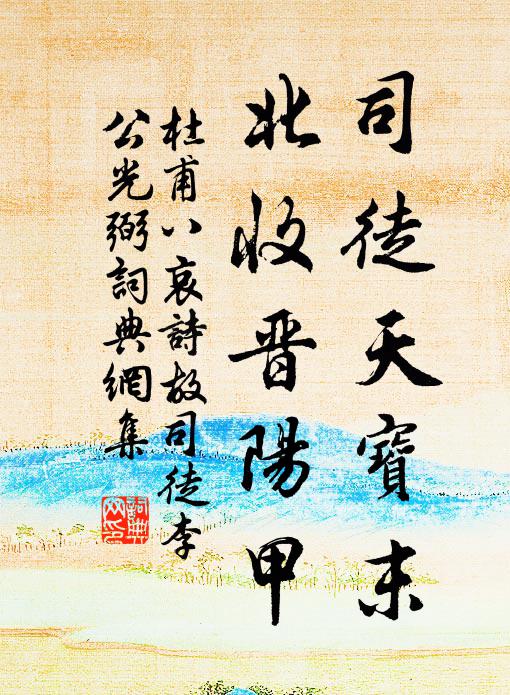 司徒天寶末
北收晋陽甲
杜甫八哀詩故司徒李
公光弼詞典網集